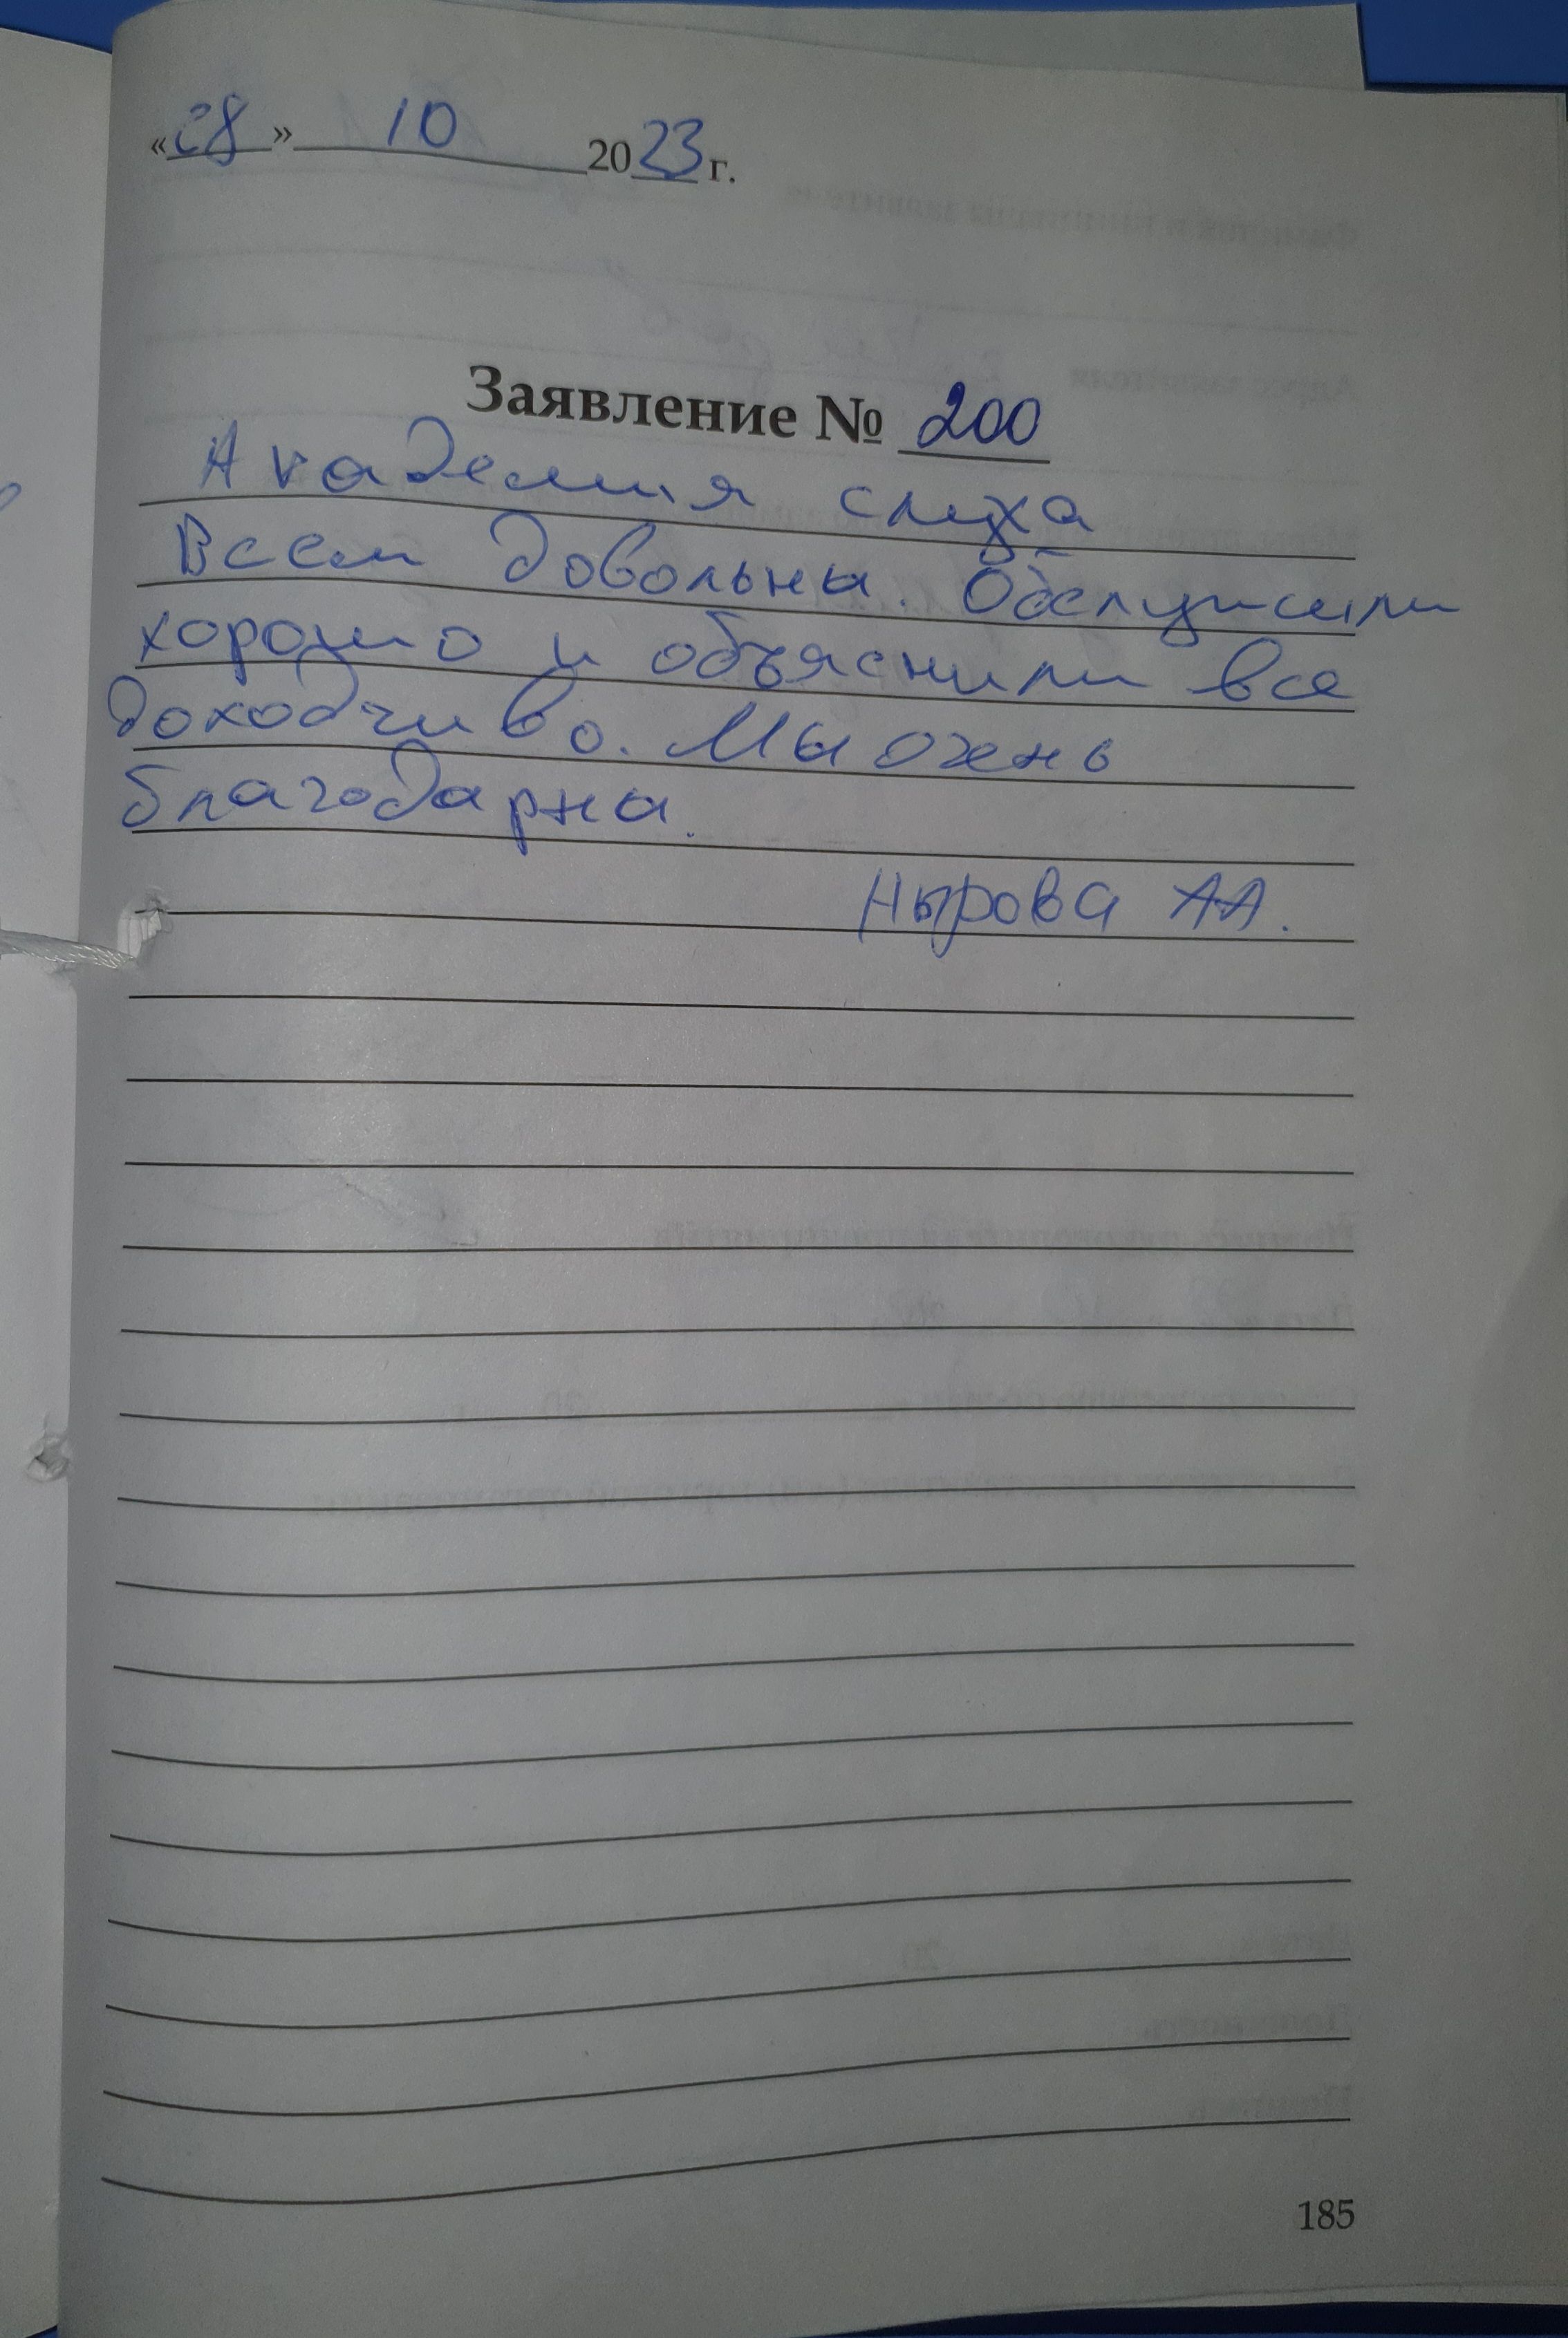 «28» 10 2023 г.
Заявление № 200
Академия слуха
Всем довольны. Обслужили
хорошо и объяснили все
доходчиво. Мы очень
благодарны.
Нырова АА.
185